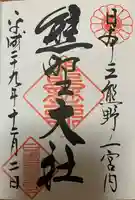 日本三熊野ノ一宮内
熊野大社
平成二十九年十一月二日